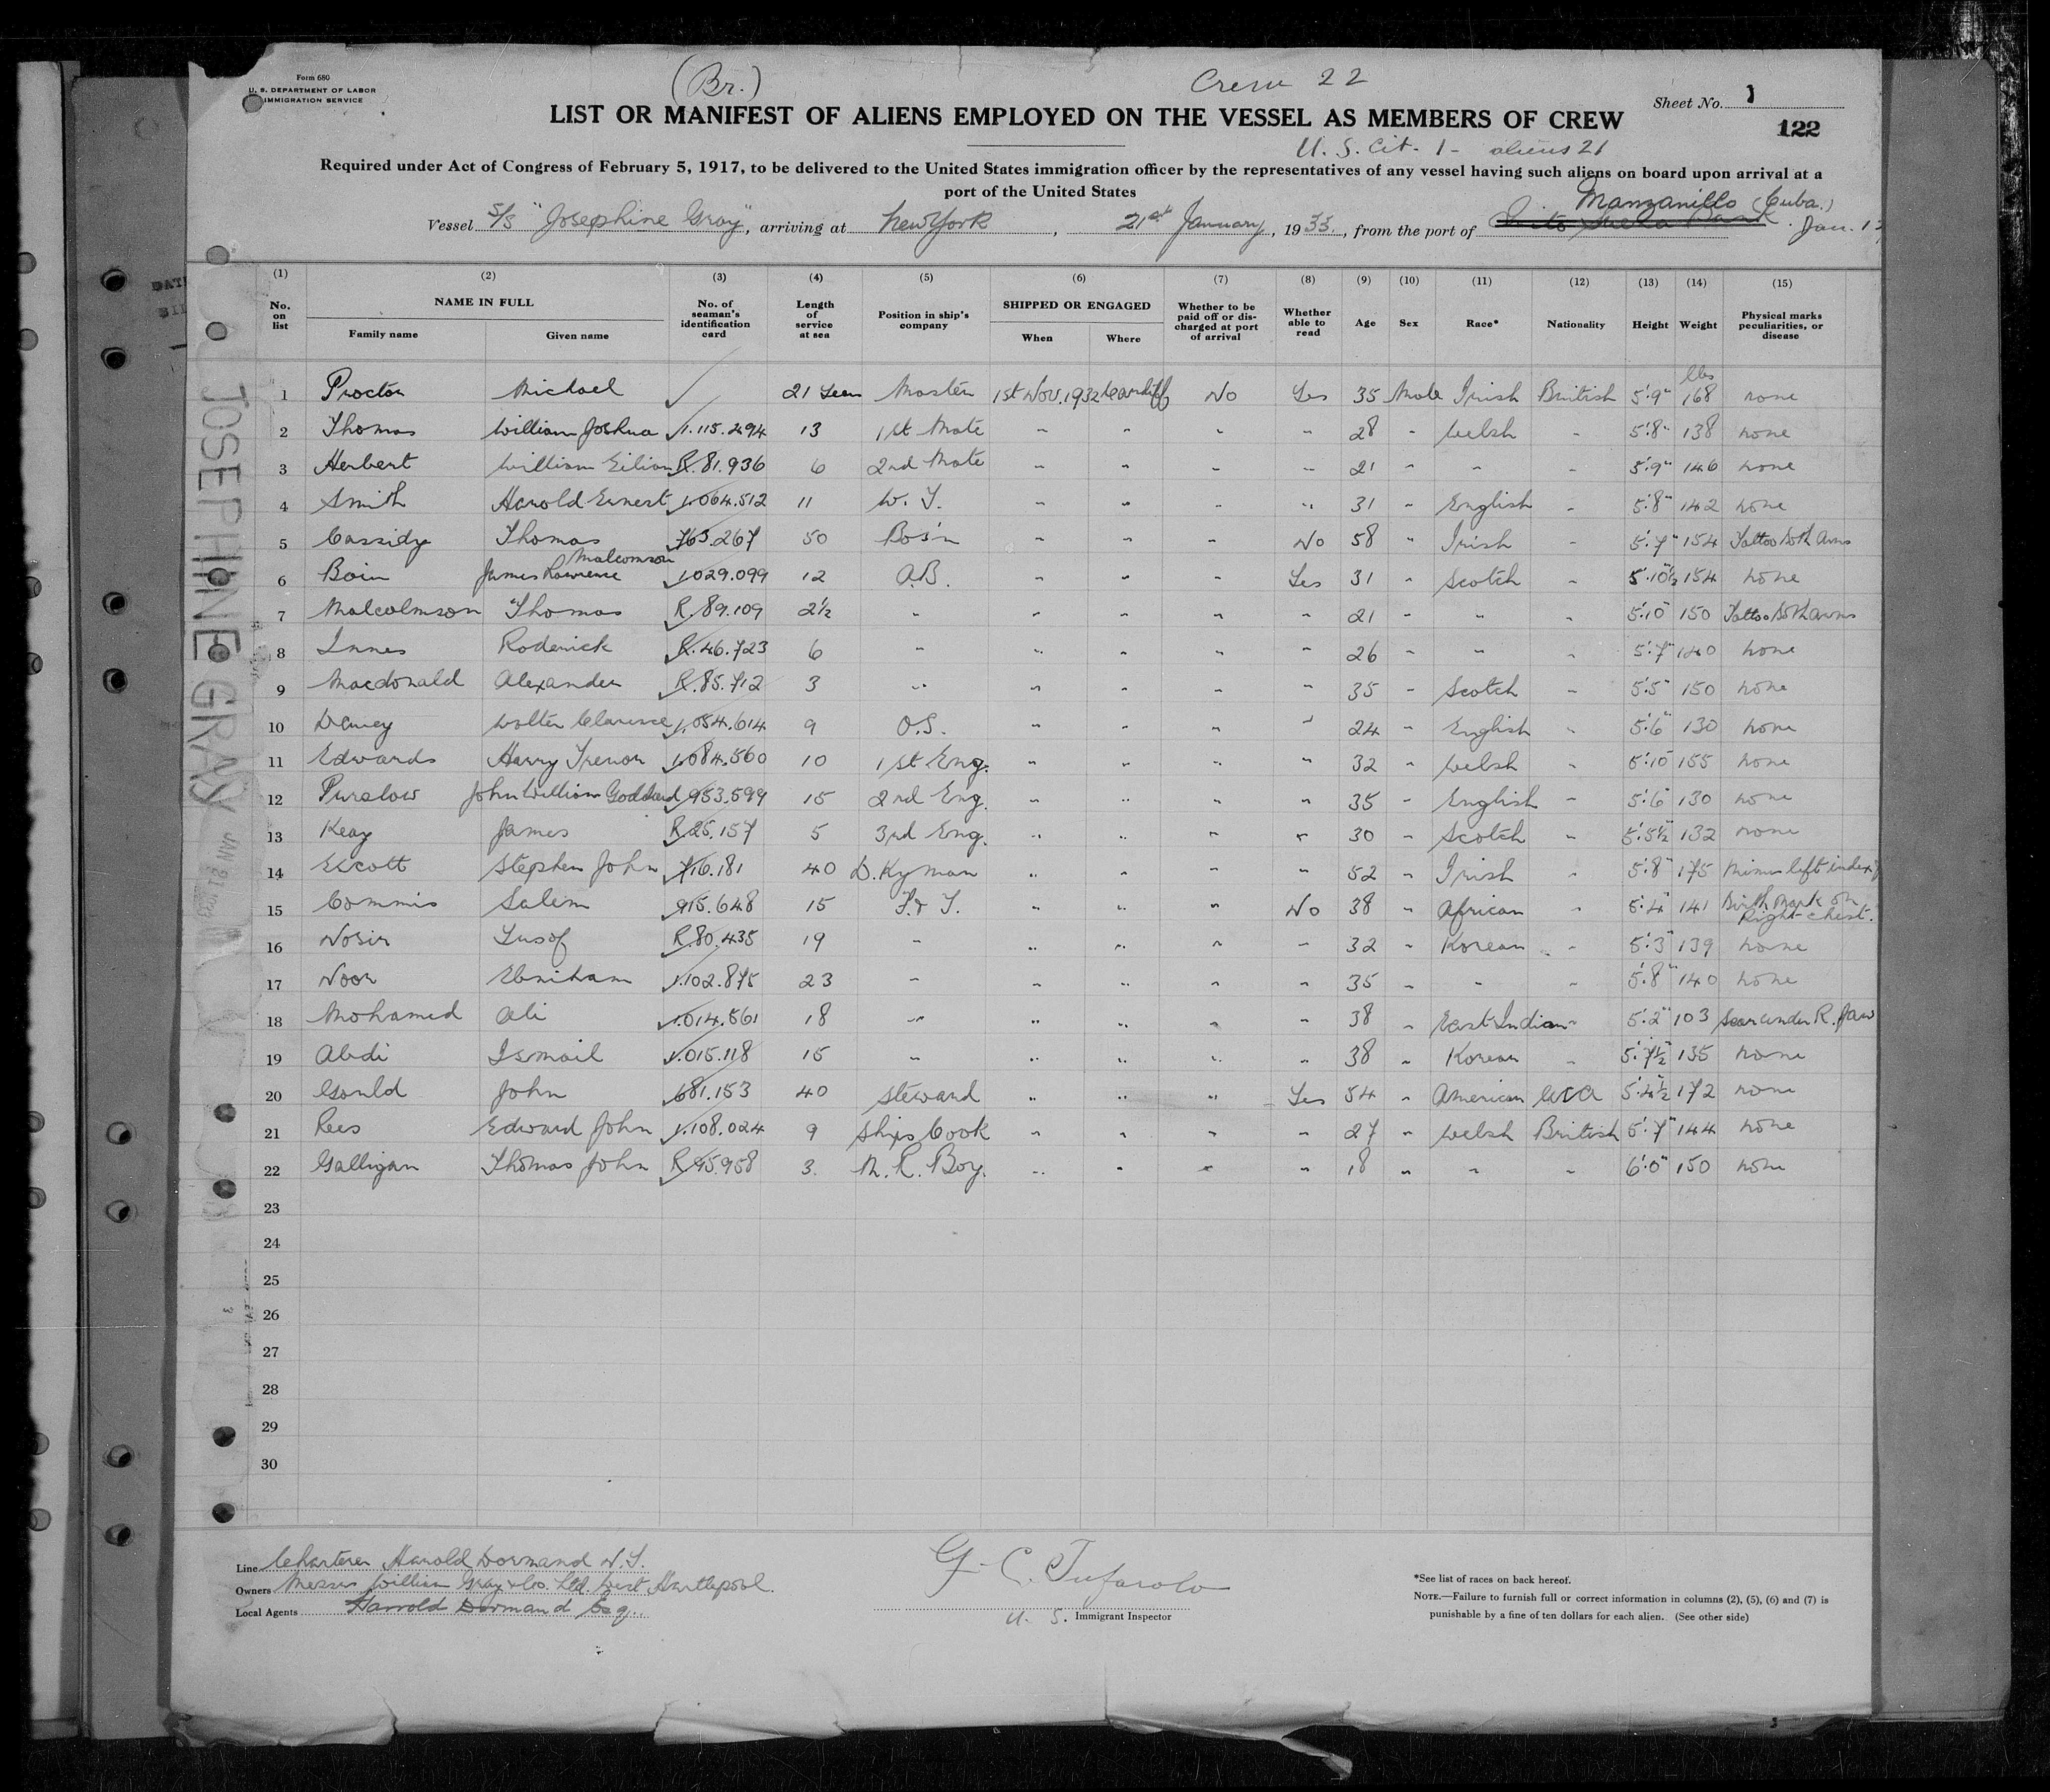 Form 680
U. S. DEPARTMENT OF LABOR
IMMIGRATION SERVICE
(Br.)
Crew 22
Sheet No. 1
LIST OR MANIFEST OF ALIENS EMPLOYED ON THE VESSEL AS MEMBERS OF CREW
122
U. S. Cit. 1 - aliens 21
Required under Act of Congress of February 5, 1917, to be delivered to the United States immigration officer by the representatives of any vessel having such aliens on board upon arrival at a
port of the United States
Manzanillo (Cuba.)
Vessel S/S "Josephine Gray", arriving at New York, 21st January, 1933, from the port of Jan. 17
(1) (2) (3) (4) (5) (6) (7) (8) (9) (10) (11) (12) (13) (14) (15)
No. on list NAME IN FULL Family name Given name No. of seaman's identification card Length of service at sea Position in ship's company SHIPPED OR ENGAGED When Where Whether to be paid off or discharged at port of arrival Whether able to read Age Sex Race* Nationality Height Weight Physical marks peculiarities, or disease
lbs
1 Proctor Michael ✓ 21 Years Master 1st Nov. 1932 Cardiff No Yes 35 Male Irish British 5'.9" 168 none
2 Thomas William Joshua 1.115.494 13 1st Mate " " " " 28 " Welsh " 5'.8" 138 none
3 Herbert William R.81.936 6 2nd Mate " " " " 21 " " " 5'.9" 146 none
4 Smith Harold Ernest 1.064.512 11 W. T. " " " " 31 " English " 5'.8" 142 none
5 Cassidy Thomas 763.267 50 Bos'n " " " No 58 " Irish " 5'.7" 154 Tattoo both arms
6 Bain James Lawrence Malcomson 1029.099 12 A.B. " " " Yes 31 " Scotch " 5'.10½ 154 none
7 Malcolmson Thomas R.89.109 2½ " " " " " 21 " " " 5'.10" 150 Tattoo both arms
8 Innes Roderick R.46.723 6 " " " " " 26 " " " 5'.7" 140 none
9 Macdonald Alexander R.85.712 3 " " " " " 35 " Scotch " 5'.5" 150 none
10 Walter Clarence 1.054.614 9 O.S. " " " " 24 " English " 5'.6" 130 none
11 Edwards Harry Trevor 1.084.560 10 1st Eng. " " " " 32 " Welsh " 5'.10" 155 none
12 Purslow John William Goddard 953.599 15 2nd Eng. " " " " 35 " English " 5'.6" 130 none
13 Keay James R.25.157 5 3rd Eng. " " " " 30 " Scotch " 5'.5½" 132 none
14 Escott Stephen John 716.181 40 D. Kyman " " " " 52 " Irish " 5'.8" 175 Minus left index f
15 Commis Salem 915.648 15 F. & T. " " " No 38 " African " 5'.4" 141 Birth mark on Right chest.
16 Nosir Yusof R.80.435 19 " " " " " 32 " Korean " 5'.3" 139 none
17 Noor Ebriham 1.102.875 23 " " " " " 35 " " " 5'.8" 140 none
18 Mohamed Ali 1.014.561 18 " " " " " 38 " East Indian " 5'.2" 103 Scar under R. Jaw
19 Abdi Ismail 1.015.118 15 " " " " " 38 " Korean " 5'.7½" 135 none
20 Gould John 681.153 40 Steward " " " Yes 54 " American USA 5'.4½" 172 none
21 Rees Edward John 1.108.024 9 Ships Cook " " " " 27 " Welsh British 5'.7" 144 none
22 Galligan Thomas John R.95.958 3. M. R. Boy. " " " " 18 " " " 6'.0" 150 none
23
24
25
26
27
28
29
30
JOSEPHINE GRAY
Line Charterer Harold Dormand N. Y.
Owners Messrs William Gray & Co. Ltd. West Hartlepool.
Local Agents Harrold Dormand Esq.
G. C. Tufarolo
U. S. Immigrant Inspector
*See list of races on back hereof.
NOTE.—Failure to furnish full or correct information in columns (2), (5), (6) and (7) is
punishable by a fine of ten dollars for each alien. (See other side)